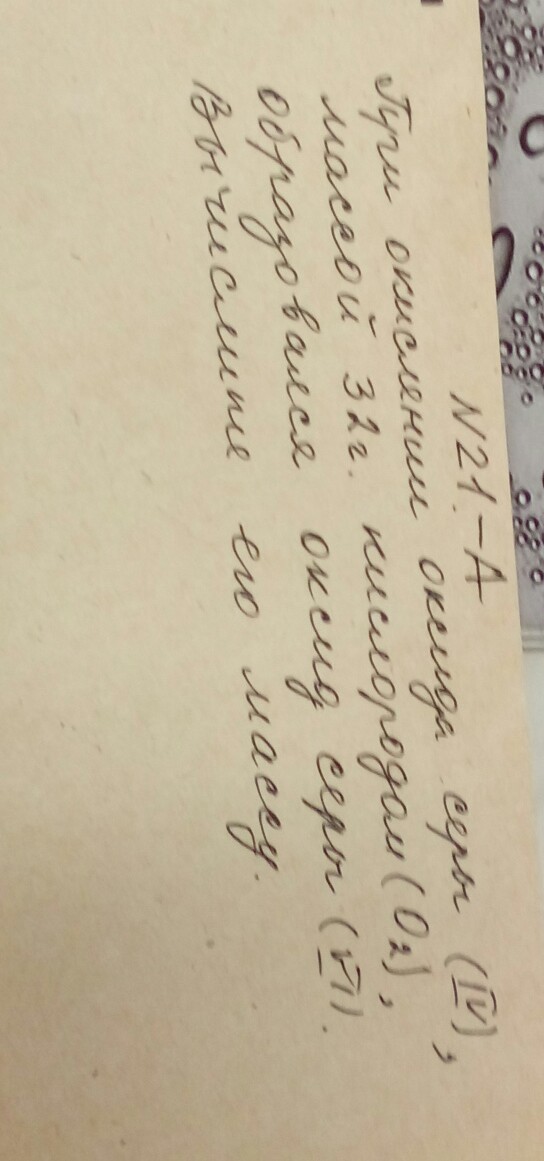 N21.-А
При окислении оксида серы (IV),
массой 32г. кислородом (O2),
образовался оксид серы (VI).
Вычислите его массу.